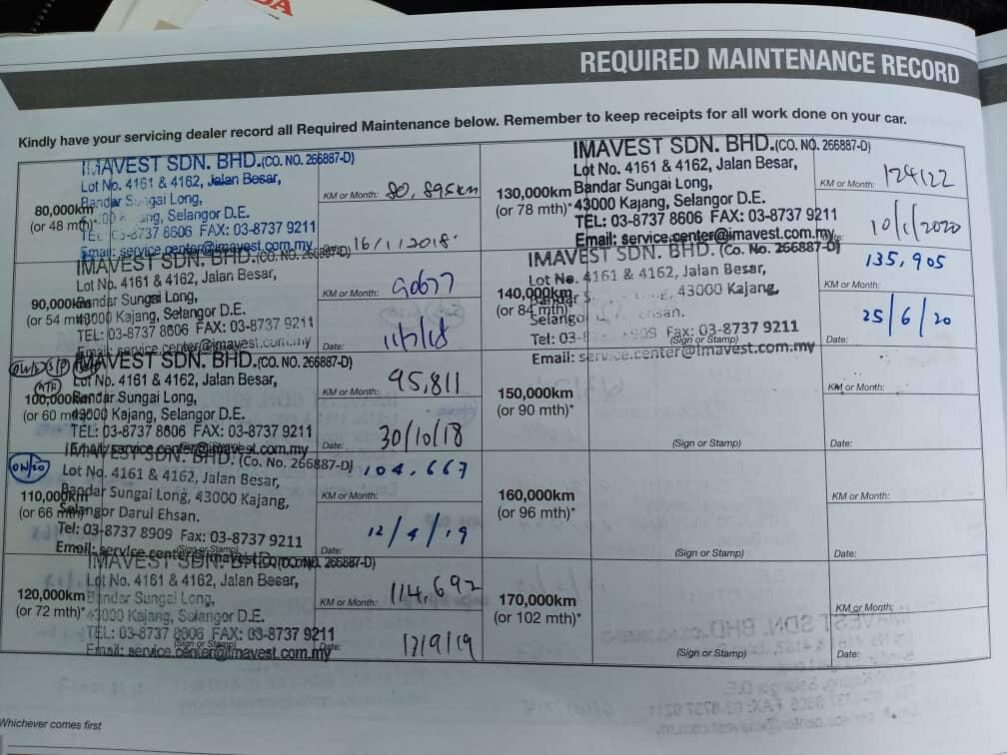 DA
REQUIRED MAINTENANCE RECORD
Kindly have your servicing dealer record all Required Maintenance below. Remember to keep receipts for all work done on your car.
80,000km
(or 48 mth)*
IMAVEST SDN. BHD.(CO. NO. 266887-D)
Lot No. 4161 & 4162, Jalan Besar,
Bandar Sungai Long,
Kajang, Selangor D.E.
TEL: 03-8737 8606 FAX: 03-8737 9211
Email: service.center@imavest.com.my
KM or Month: 80,895km
16/1/2018
90,000km
(or 54 mth)*
IMAVEST SDN. BHD.(CO. NO. 266887-D)
Lot No. 4161 & 4162, Jalan Besar,
Bandar Sungai Long,
43000 Kajang, Selangor D.E.
TEL: 03-8737 8606 FAX: 03-8737 9211
Email: service.center@imavest.com.my
KM or Month: 90677
Date:
100,000km
(or 60 mth)*
IMAVEST SDN. BHD.(CO. NO. 266887-D)
Lot No. 4161 & 4162, Jalan Besar,
Bandar Sungai Long,
43000 Kajang, Selangor D.E.
TEL: 03-8737 8606 FAX: 03-8737 9211
Email: service.center@imavest.com.my
KM or Month: 95,811
Date: 30/10/18
110,000km
(or 66 mth)*
IMAVEST SDN. BHD. (Co. No. 266887-D)
Lot No. 4161 & 4162, Jalan Besar,
Bandar Sungai Long, 43000 Kajang,
Selangor Darul Ehsan.
Tel: 03-8737 8909 Fax: 03-8737 9211
Email: service.center@imavest.com.my
(Sign or Stamp)
KM or Month: 104,667
Date: 12/4/19
120,000km
(or 72 mth)*
IMAVEST SDN. BHD.(CO. NO. 266887-D)
Lot No. 4161 & 4162, Jalan Besar,
Bandar Sungai Long,
43000 Kajang, Selangor D.E.
TEL: 03-8737 8606 FAX: 03-8737 9211
(Sign or Stamp)
Email: service.center@imavest.com.my
KM or Month: 114,692
Date: 12/9/19
130,000km
(or 78 mth)*
IMAVEST SDN. BHD.(CO. NO. 266887-D)
Lot No. 4161 & 4162, Jalan Besar,
Bandar Sungai Long,
43000 Kajang, Selangor D.E.
TEL: 03-8737 8606 FAX: 03-8737 9211
Email: service.center@imavest.com.my
KM or Month: 124122
10/1/2020
140,000km
(or 84 mth)*
IMAVEST SDN. BHD. (Co. No. 266887-D)
Lot No. 4161 & 4162, Jalan Besar,
43000 Kajang,
Fax: 03-8737 9211
(Sign or Stamp)
Email: service.center@imavest.com.my
KM or Month: 135,905
Date: 25/6/20
150,000km
(or 90 mth)*
(Sign or Stamp)
KM or Month:
Date:
160,000km
(or 96 mth)*
(Sign or Stamp)
KM or Month:
Date:
170,000km
(or 102 mth)*
(Sign or Stamp)
KM or Month:
Date:
Whichever comes first